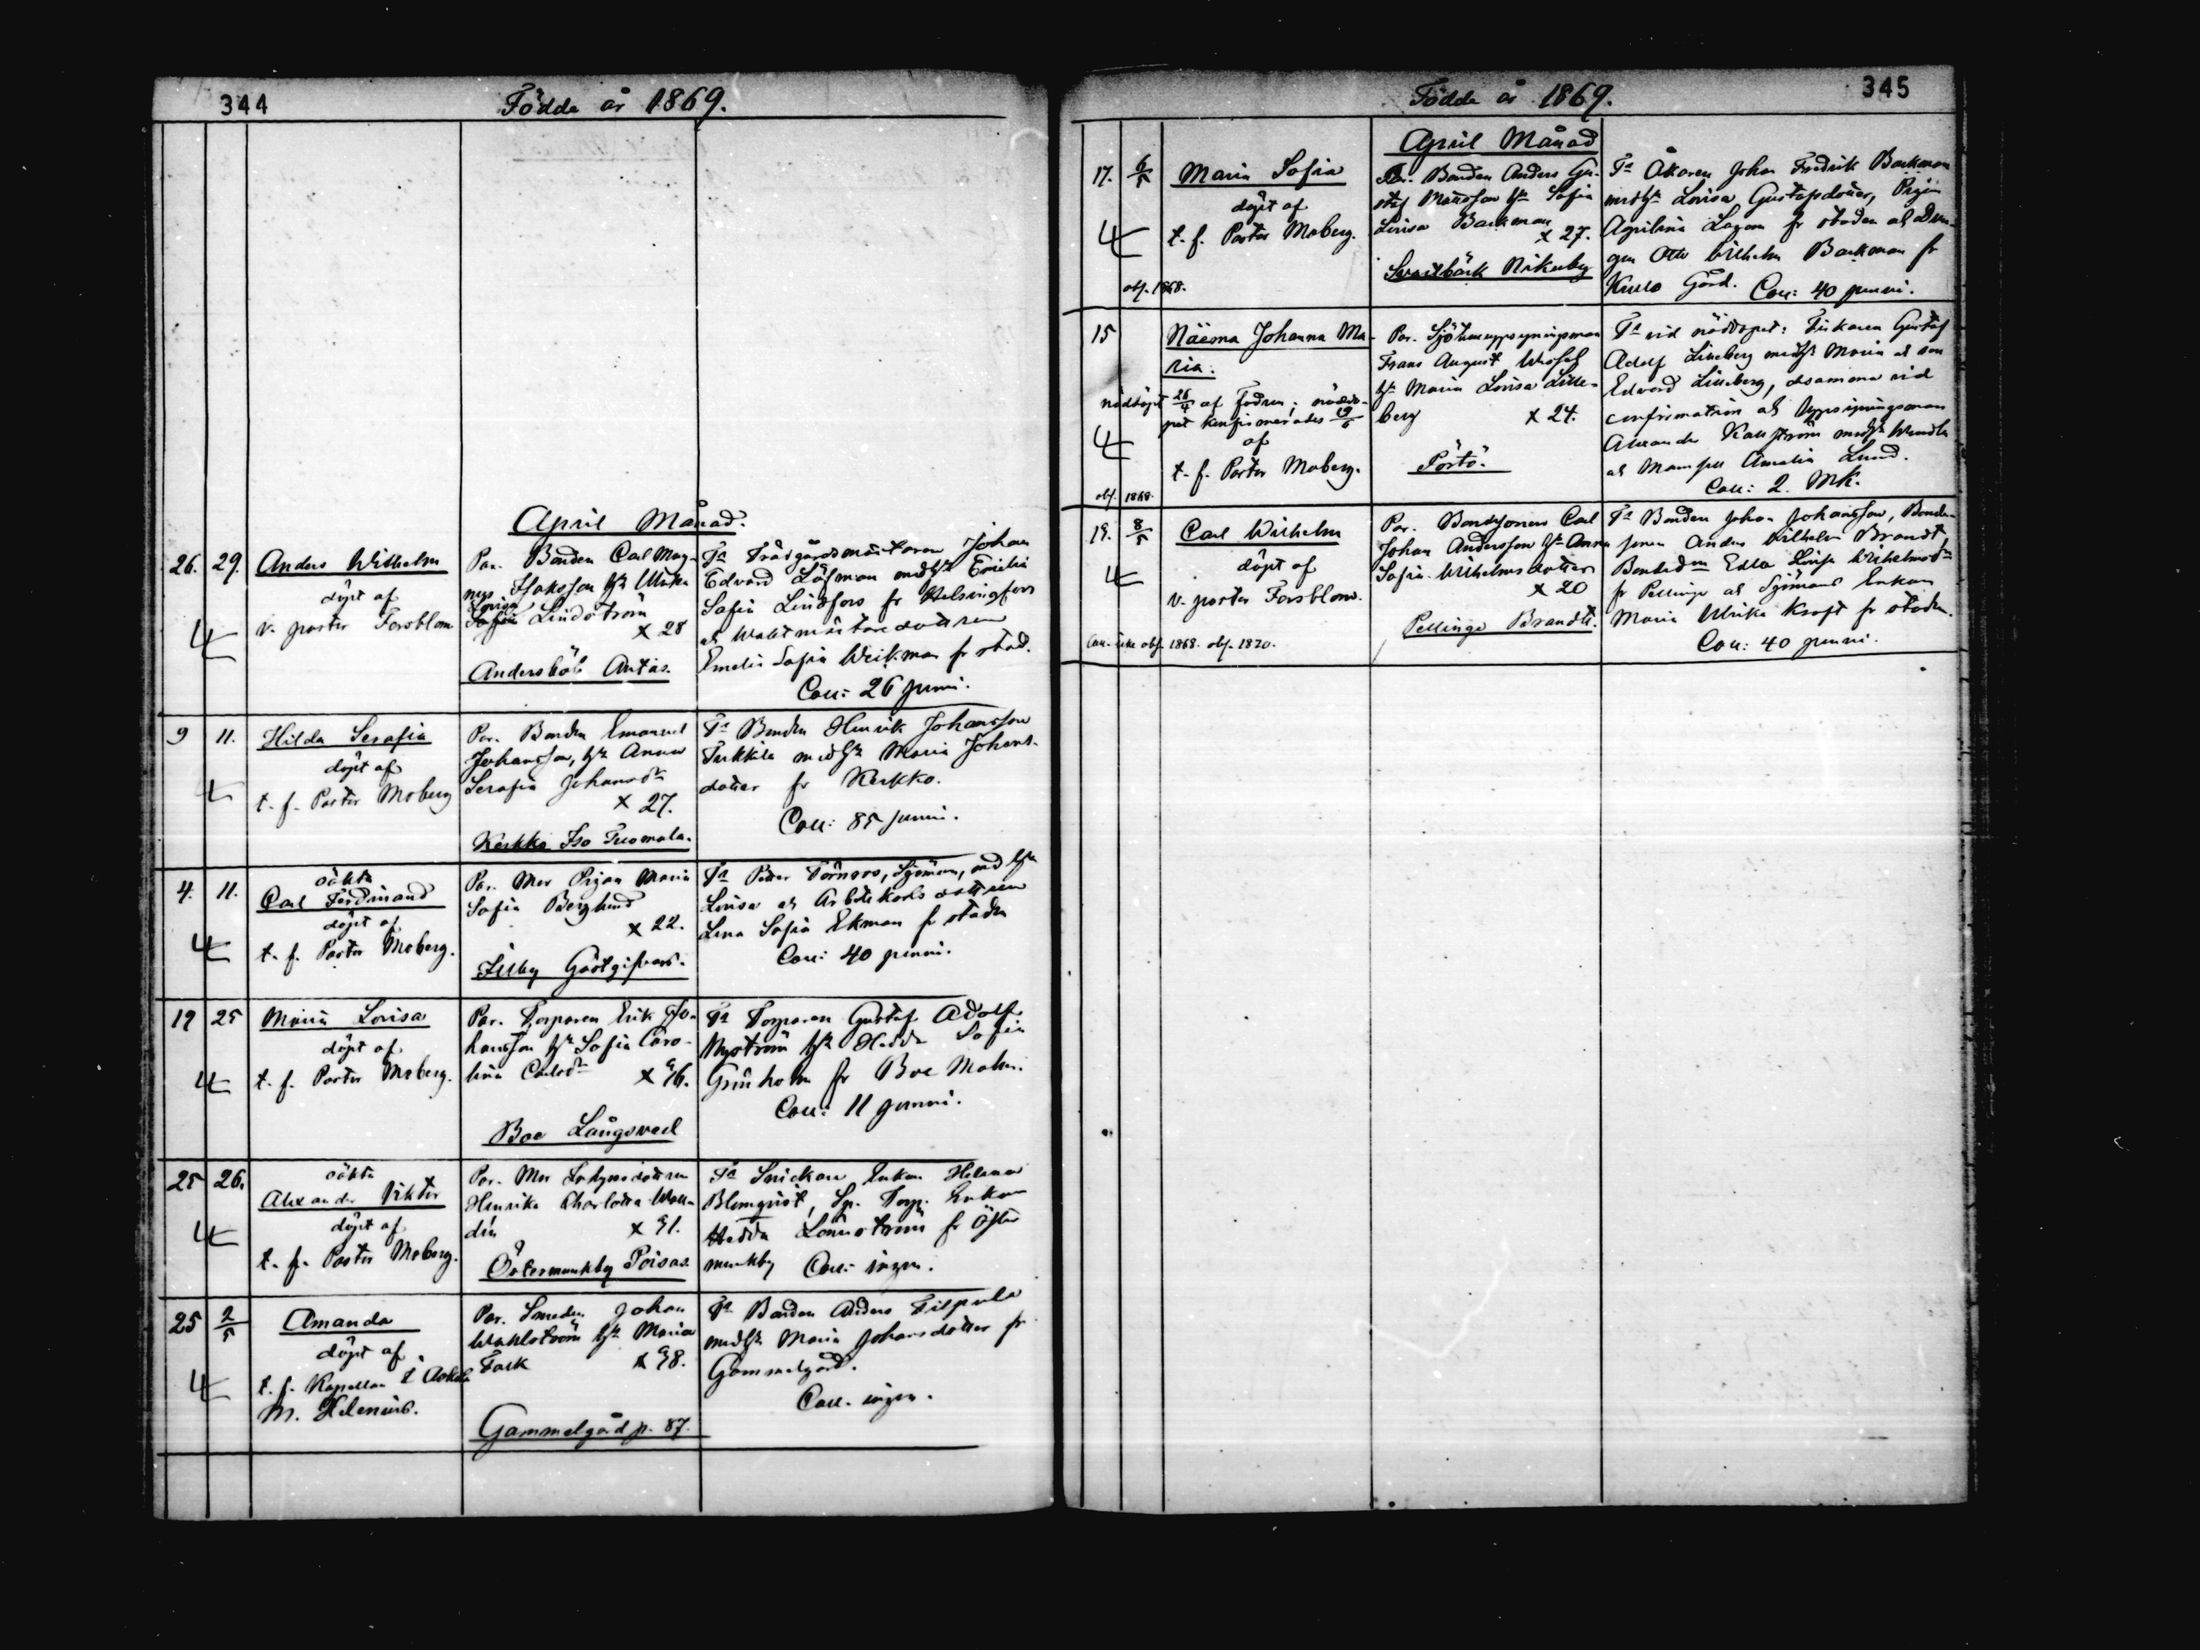 344
Födde år 1869.
April Månad.
26. 29. Anders Wilhelm
döpt af
v. pastor Forsblom
Par. Bonden Carl Mag-
nus Isaksson hu Ulrika
Lovisa
Sofia Lindström
x 28
Andersböle Antas.
Ts Trädgårdsmästaren Johan
Edvard Löfman med hu Emilia
Sofia Lindfors fr Helsingfors
Emelie Sofia Weikman fr stad.
Coll: 26 penni.
9 11. Hilda Serafia
döpt af
t. f. Pastor Moberg
Par. Bonden Emanuel
Johansson, hu Anna
Serafia Johansdr
x 27.
Kerkko Iso Tuomala.
Ts Bonden Henrik Johansson
Turkkila med hu Maria Johans-
dotter fr Kerkko.
Coll: 85 penni.
4. 11. oäkta
Carl Ferdinand
döpt af
t. f. Pastor Moberg.
Par. Mor Pigan Maria
Sofia Berglund
x 22.
Illby Gästgifvars.
Ts Petter Törnroos, Sjöman, med hu
Lovisa
Lena Sofia Ekman fr staden
Coll: 40 penni.
19 25 Maria Lovisa
döpt af
t. f. Pastor Moberg.
Par. Torparen Erik Jo-
hansson hu Sofia Caro-
lina Carlsdr x 36.
Boe Långsved
Ts Torparen Gustaf Adolf
Nyström hu Hedda Sofia
Grönholm fr Boe Malm.
Coll: 11 penni.
25 26. oäkta
Alexander Viktor
döpt af
t. f. Pastor Moberg.
Par. Mor
Henrika Charlotta Wall-
din x 31.
Östermunkby Poisas.
Ts Snickare Enkan Helena
Blomqvist, Sp. Torp. Enkan
Hedda Lönnström fr Öster
munkby Coll: ingen.
25 2/5 Amanda
döpt af
t. f. Kapellan i Askola
M. Helenius.
Par. Smeden Johan
Wahlström hu Maria
Fack x 38.
Gammelgård p. 87.
Ts Bonden Anders Filpula
med hu Maria Johansdotter fr
Gammelgård.
Coll. ingen.
Födde år 1869.
345
April Månad
17. 6/5 Maria Sofia
döpt af
t. f. Pastor Moberg.
obf. 1868.
Par. Bonden Anders Gu-
staf Mattsson hu Sofia
Lovisa Backman
x 27.
Svartbäck Nikuby
Ts Åkaren Johan Fredrik Backman
med hu Lovisa Gustafsdotter, Pigan
Agrikina Lagom fr staden och Drän-
gen Otto Wilhelm Backman fr
Kullo Gård. Coll: 40 penni.
15 Näema Johanna Ma-
ria.
nödöpt 26/4 af Fadren; nöddo-
pet konfirmerades 19/5
af
t. f. Pastor Moberg.
obf. 1868.
Par. Sjötulluppsyningsman
Frans August
hu Maria Lovisa Lille-
berg x 24.
Pörtö.
Ts vid nöddopet: Fiskaren Gustaf
Adolf Lilleberg med hu Maria och son
Edvard Lilleberg, desamma vid
confirmation och Uppsyningsman
Alexander Kallström med hu Wendla
och Mamsell Amalia Lund.
Coll: 2. Mk.
19. 8/5 Carl Wilhelm
döpt af
v. pastor Forsblom.
icke obf. 1868. obf. 1870.
Par. Bondsonen Carl
Johan Andersson hu Anna
Sofia Wilhelmsdotter
x 20
Pellinge Brandts.
Ts Bonden Johan Johansson, Bonde-
sonen Anders Wilhelm Brandt,
Bondedrn Edla Lovisa Wilhelmsdr
fr Pellinge och Sjömans Enkan
Maria Ulrika Kroft fr staden.
Coll: 40 penni.